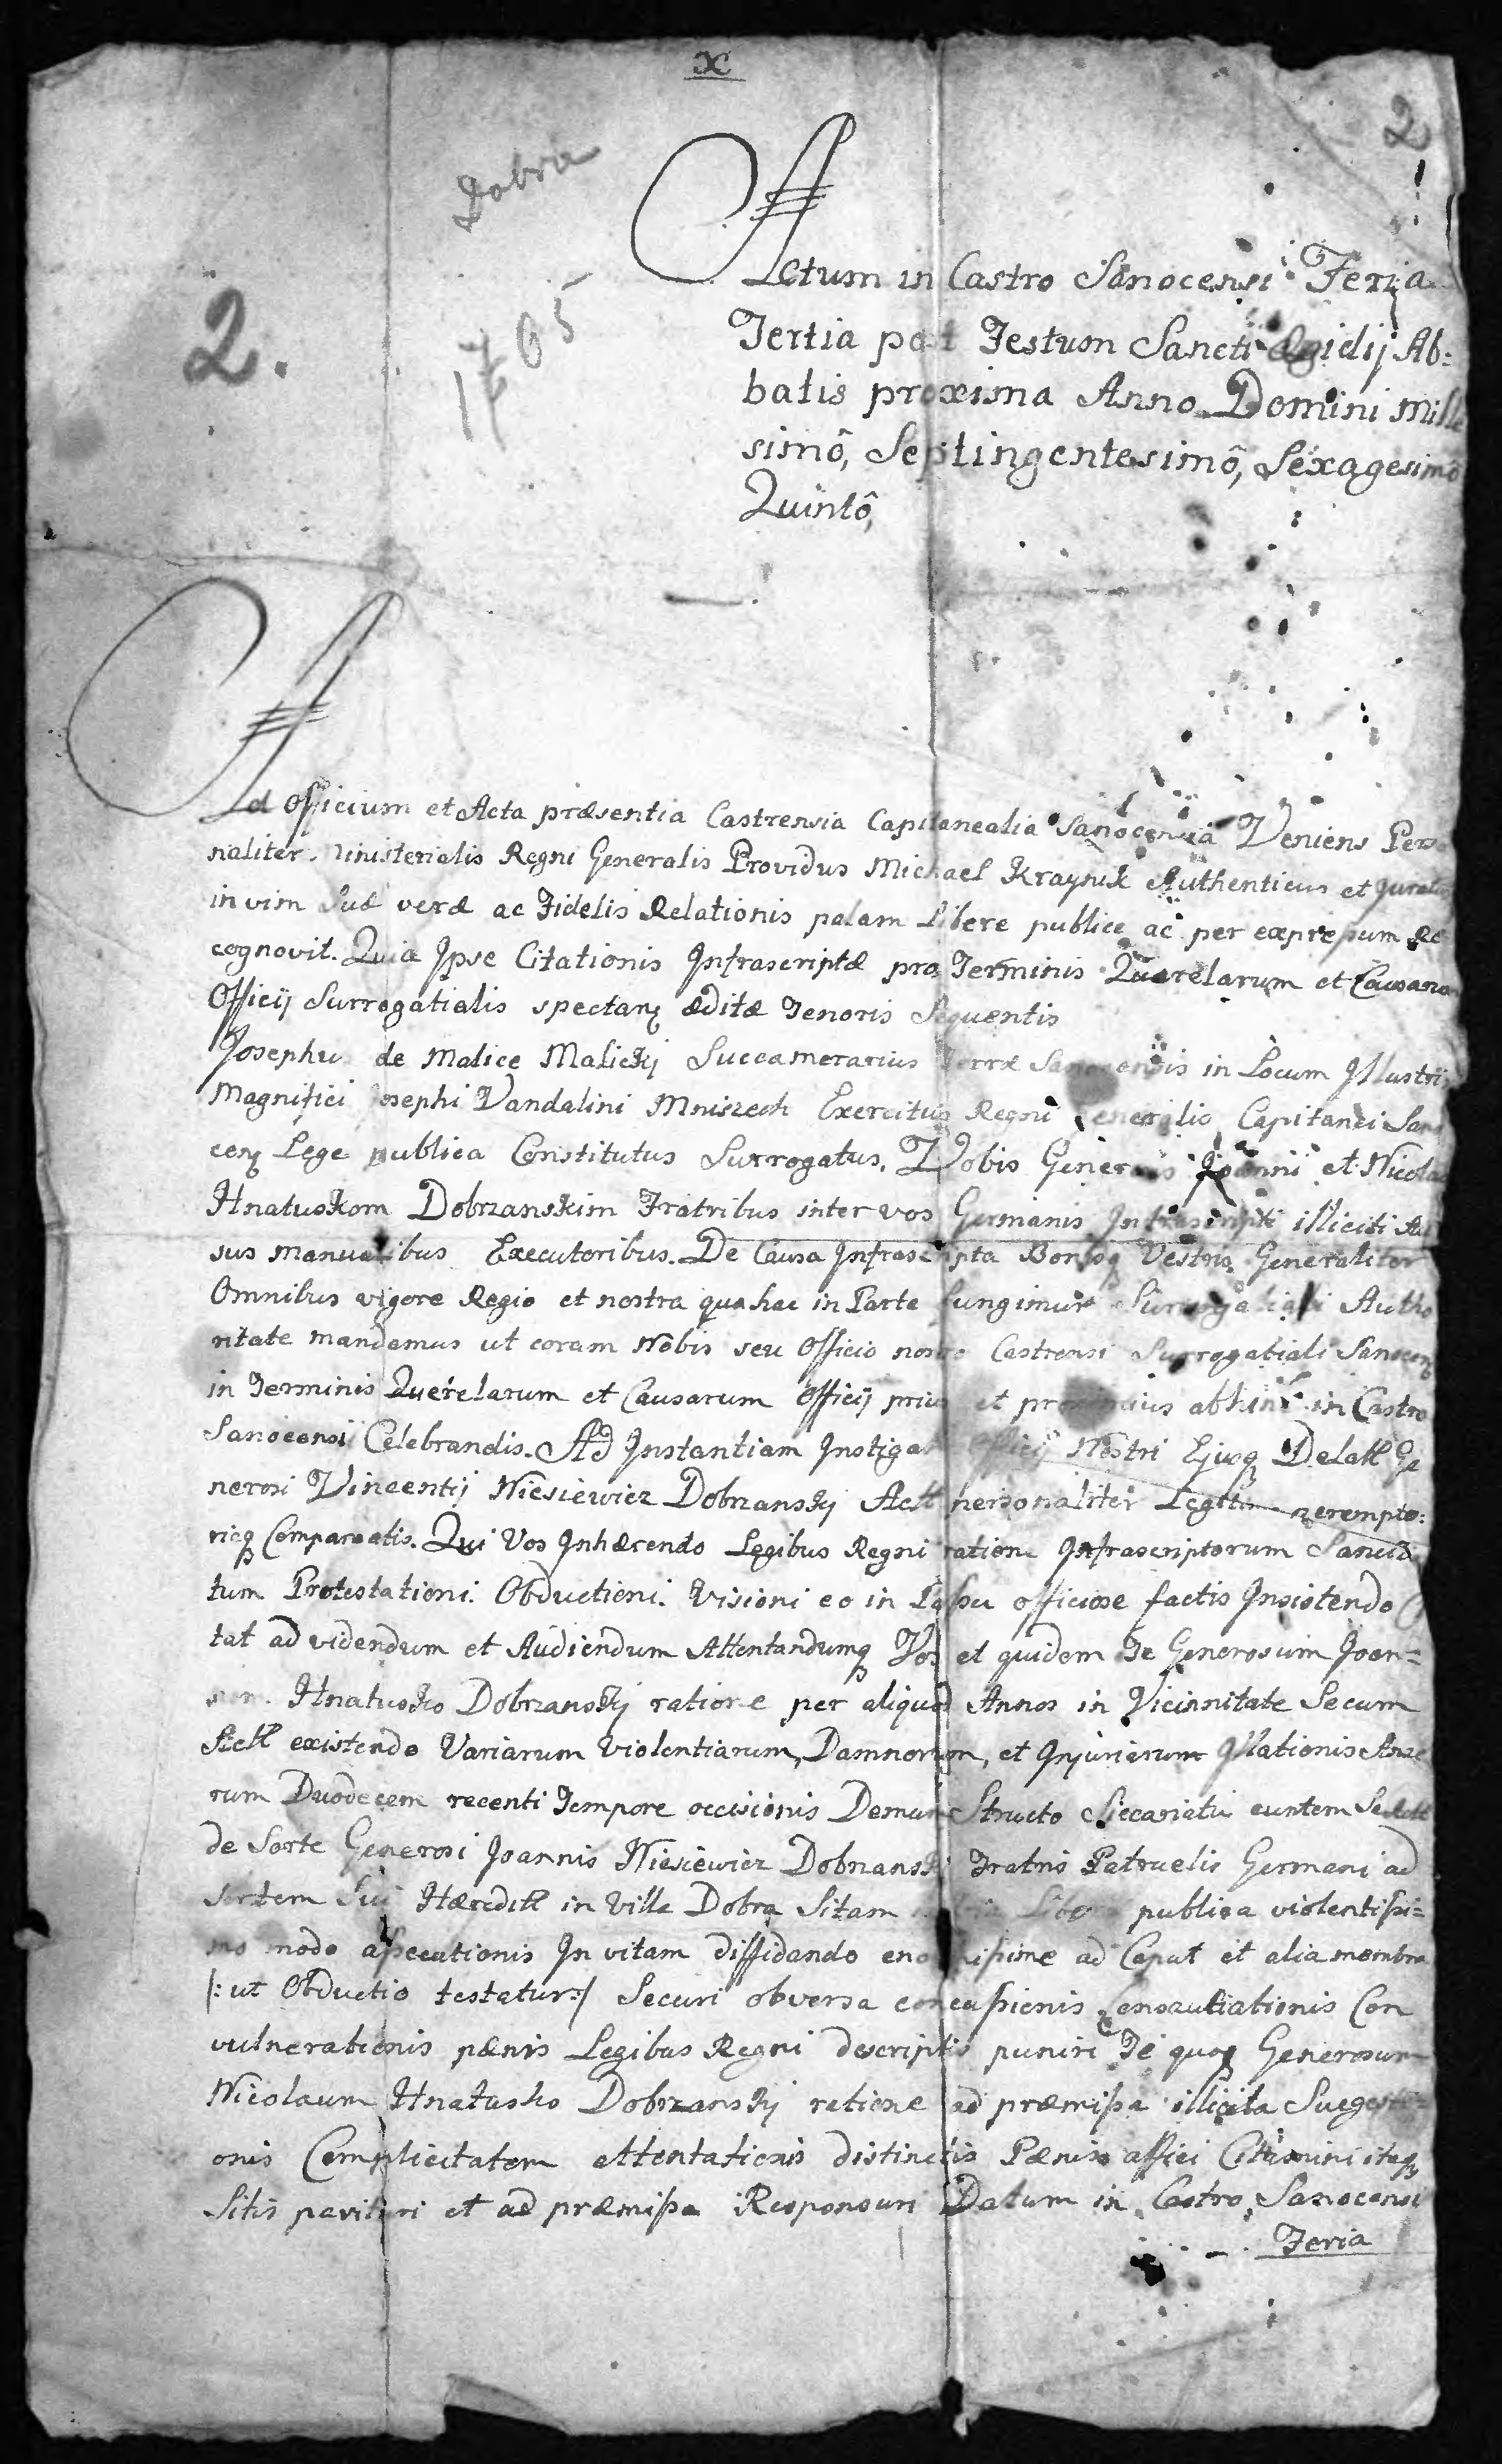 x
2
Dobra
2.
1765
Actum in Castro Sanocensi Feria
Tertia post Festum Sancti Ægidij Ab:
batis proxima Anno Domini Mille
simô, Septingentesimô, Sexagesimô
Quintô,
Ad Officium et Acta præsentia Castrensia Capitanealia Sanocensia Veniens Perso
naliter Ministerialis Regni Generalis Providus Michael Kraynik Authenticus et Juratus
in vim Suæ veræ ac Fidelis Relationis palam Libere publice ac per expressum Re
cognovit. Quia Ipse Citationis Infrascriptæ pro Terminis Querelarum et Causarum
Officij Surrogatialis spectanȩ æditæ Tenoris Sequentis
Josephus de Malice Malickij Succamerarius Terræ Sanocensis in Locum Illustris
Magnifici Josephi Vandalini Mniszech Exercitus Regni Generalis Capitanei Sano
cenȩ Lege publica Constitutus Surrogatus. Vobis Generosis Joanni et Nicolao
Hnatuskom Dobrzanskim Fratribus inter vos Germanis Infrascripti illiciti Au
sus manualibus Executoribus. De Causa Infrascripta Bonisq Vestris Generaliter
Omnibus vigore Regio et nostra qua hac in Parte fungimur Surrogatiali Autho
ritate mandamus ut coram Nobis seu Officio nostro Castrensi Surrogatiali Sanocenȩ
in Terminis Querelarum et Causarum Officij prius et proximius abhinc in Castro
Sanocensi Celebrandis. Ad Instantiam Instigat Officij Nostri Ejusq Delatt Ge
nerosi Vincentij Niesiewicz Dobrzanskij Actt personaliter Legitime perempto:
rieq Compareatis. Qui Vos Inhærendo Legibus Regni ratione Infrascriptorum Sancitis
tum Protestationi. Obductioni. Visioni eo in Passu officiose factis Insistendo Ci
tat ad videndum et Audiendum Attentandumq Vos et quidem Te Generosum Joan=
nem Hnatusko Dobrzanskij ratione per aliquod Annos in Vicinnitate Secum
Actt existendo Variarum Violentiarum, Damnorum, et Injuriarum Illationis Anse
rum Duodecem recenti Tempore occisionis Demum Structo Siccariatu euntem
de Sorte Generosi Joannis Niesiewicz Dobrzanskij Fratris Patruelis Germani ad
Sortem Sui Hæreditt in Villa Dobra Sitam via Libera publica violentissi=
mo modo assecutionis In vitam diffidando enormissime ad Caput et alia membra
/: ut Obductio testatur :/ Securi obversa concussionis Consauciationis Con
vulnerationis pænis Legibus Regni descriptis puniri Te quoq Generosum
Nicolaum Hnatusko Dobrzanskij ratione ad præmissa illicita Suggesti=
onis Complicitatem attentationis distinctis Pænis affici Citamini itaq
Sitis parituri et ad præmissa Responsuri Datum in Castro Sanocensi
Feria